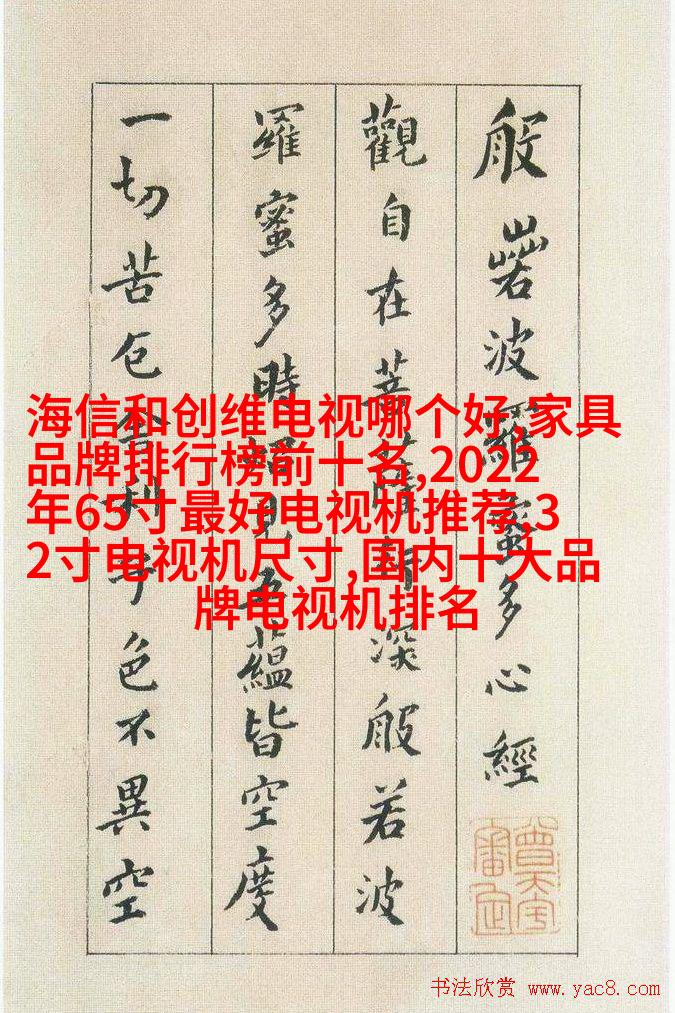 般若波羅蜜多心經
觀自在菩薩行深般若波
羅蜜多時照見五蘊皆空度
一切苦厄舍利子色不異空
海信和创维电视哪个好,家具
品牌排行榜前十名,2022
年65寸最好电视机推荐,3
2寸电视机尺寸,国内十大品
牌电视机排名
书法欣赏 www.yac8.com